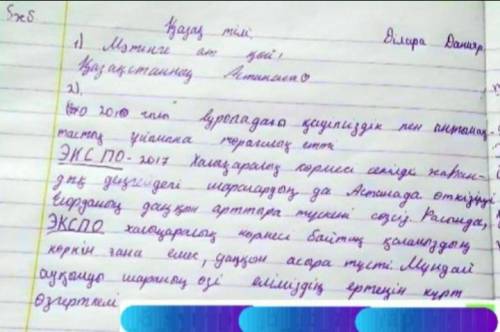 5х5
Қазақ тілі Ділара Данияр
1) Мәтінге ат қой!
Қазақстанның Астанасы
2).
2010 Еуропадағы қауіпсіздік пен ынтымақ
тастық ұйымына төрағалық етті
ЭКСПО-2017 Халықаралық көрмесі секілді жаһан-
дық деңгейдегі шаралардың да Астанада өткізілуі
Елорданың даңқын арттыра түскені сөзсіз. Расында,
ЭКСПО халықаралық көрмесі байтақ қаламыздың
көркін ғана емес, даңқын асыра түсті. Мұндай
ауқымды шараның өзі еліміздің ертеңін күрт
өзгертпелі